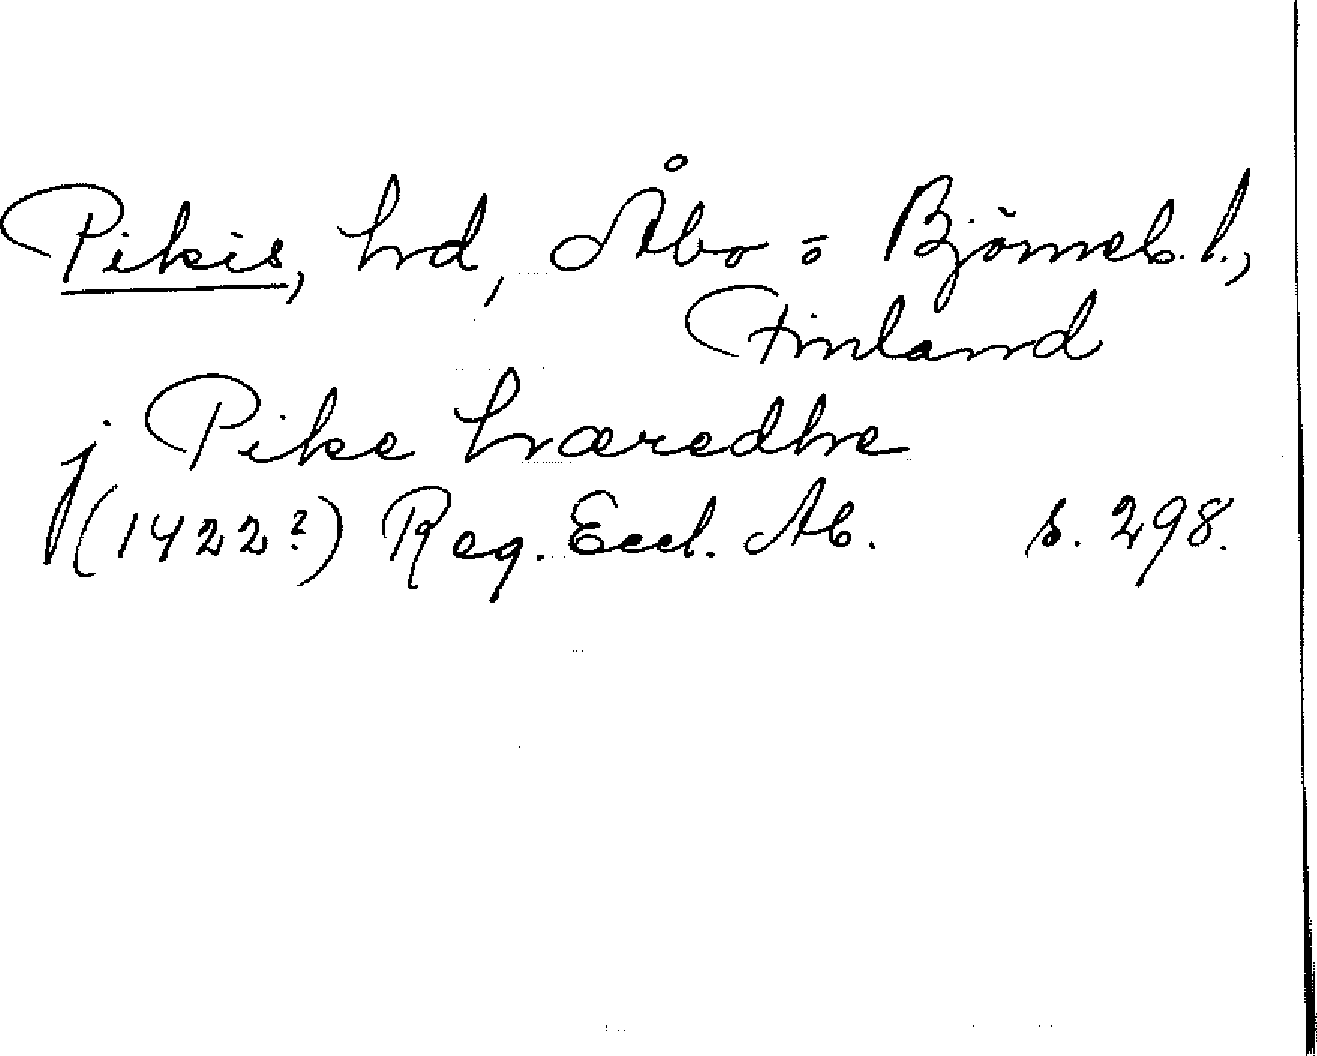 Pikis, hd, Åbo o Björneb. l.,
Finland
j Pike hæredhe
(1422?) Reg. Eccl. Ab. s. 298.